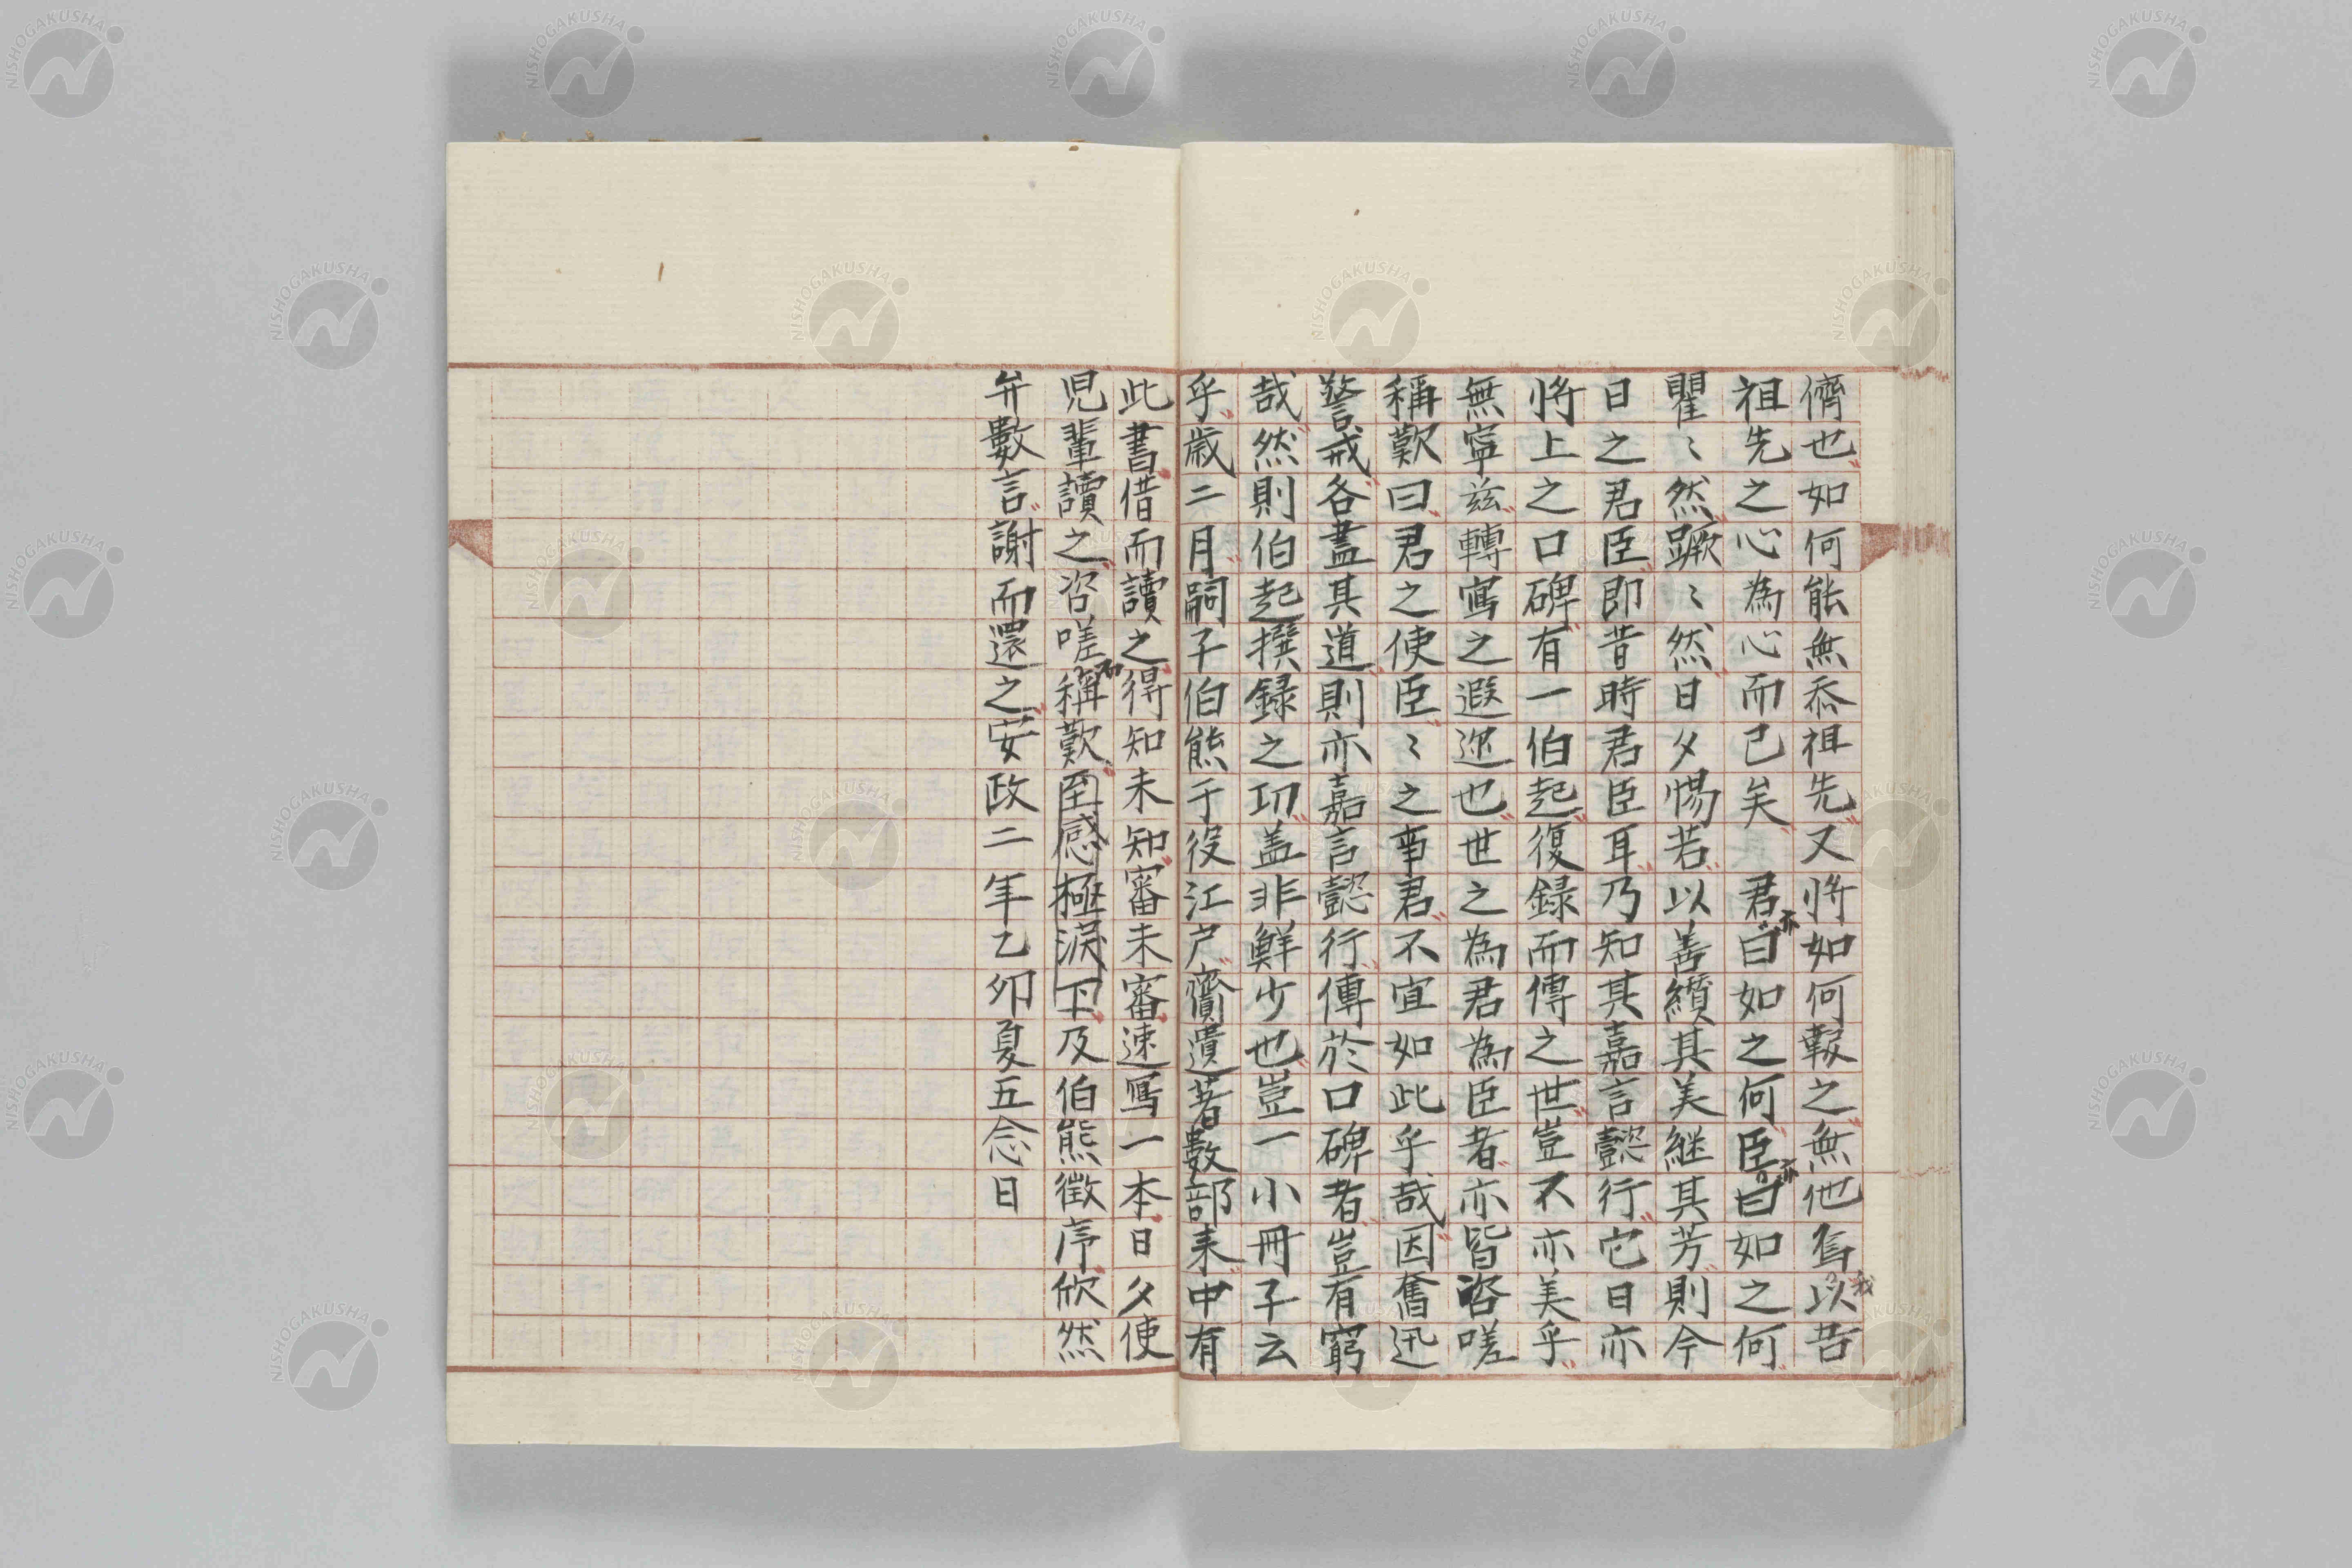 儕也如何能無忝祖先又將如何報之無他爲以我昔
祖先之心為心而已矣　君亦曰如之何臣亦曰如之何
瞿〻然蹶〻然日夕惕若以善纘其美継其芳則今
日之君臣即昔時君臣耳乃知其嘉言懿行它日亦
將上之口碑有一伯起復録而傳之世豈不亦美乎
無寧茲轉寫之遐迩也世之為君為臣者亦皆咨嗟
稱歎曰君之使臣〻之事君不宜如此乎哉因奮迅
警戒各盡其道則亦嘉言懿行傳於口碑者豈有窮
哉然則伯起撰録之功盖非鮮少也豈一小冊子云
乎歳二月嗣子伯熊于役江戸齎遺著數部来中有
此書借而讀之得知未知審未審速寫一本日夕使
児輩讀之咨嗟而稱歎至感極淚下及伯熊徵序欣然
弁數言謝而還之安政二年乙卯夏五念日
NISHOGAKUSHA